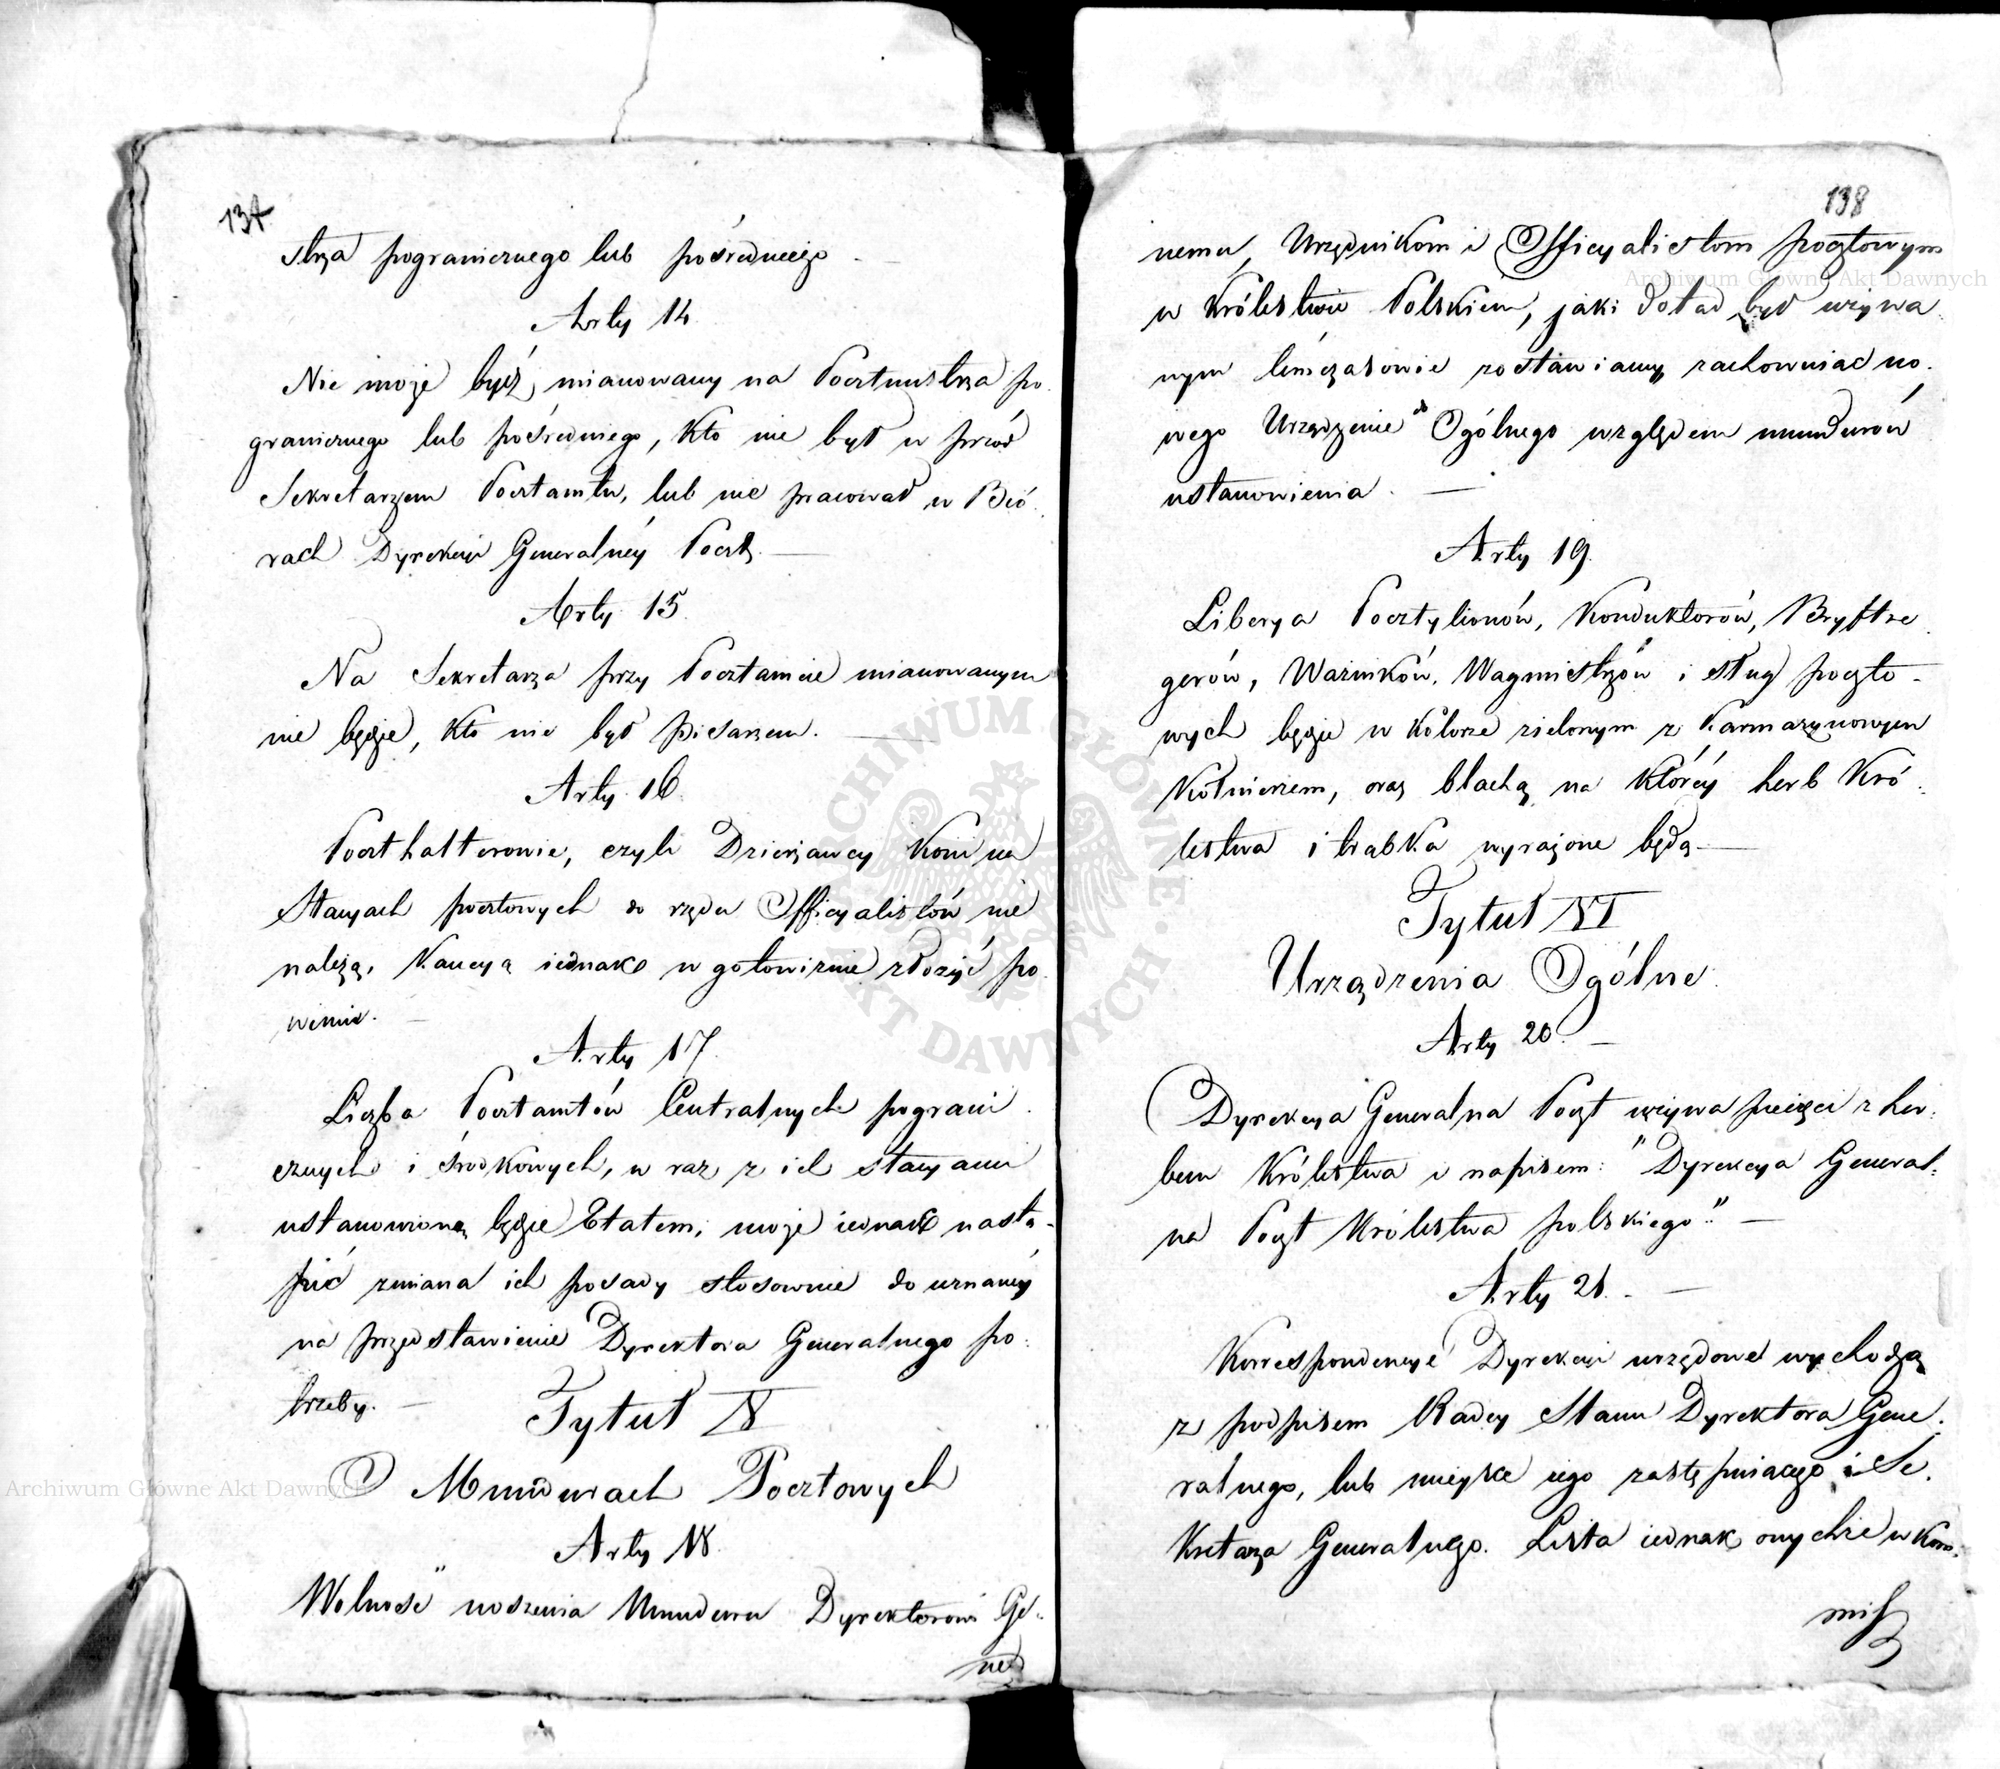 137
strza pogranicznego lub pośredniego
Arty 14
Nie może być mianowany na Pocztmistrza po-
granicznego lub pośredniego, kto nie był w przód
Sekretarzem Pocztamtu, lub nie pracował w Bió-
rach Dyrekcyi Generalnéy Poczt.
Arty. 15.
Na Sekretarza przy Pocztamcie mianowanym
nie będzie, kto nie był pisarzem.
Arty. 16.
Poczthalterowie, czyli Dzierżawcy Koni na
Stacyach pocztowych do rzędu Officyalistów nie
należą, Kaucyą iednak w gotowiznie złożyć po-
winni.
Arty 17.
Liczba Pocztamtów Centralnych pograni-
cznych i środkowych, w raz z ich stacyami
ustanowioną będzie Etatem, może iednak nastą-
pić zmiana ich posady stosownie do uznanéy
na przedstawienie Dyrektora Generalnego po-
trzeby.
Tytuł V
O Mundurach Pocztowych
Arty 18.
Wolność noszenia Munduru Dyrektorowi Ge-
ne
138
nemu, Urzędnikom i Officyalistom pocztowym
w Królestwie Polskiem, jaki dotad był używa
nym tymczasowie zostawiamy zachowuiac no-
wego Urządzenie Ogólnego względem mundurów
ustanowienia.
Arty 19.
Liberya Pocztylionów, Konduktorów, Bryftre
gerów, Waźników, Wagmistrzów i sług poczto-
wych będzie w kolorze zielonym z karmazynowym
Kołnierzem, oraz blachą na któréy herb Kró-
lestwa i trabka wyrażone będą
Tytuł VI
Urządzenia Ogólne.
Arty 20.
Dyrekcya Generalna Poczt używa pieczęci z her-
bem Królestwa i napisem: "Dyrekcya General-
na Poczt Królestwa polskiego".
Arty 21.
Korrespondencye Dyrekcyi urzędowe wychodzą
z podpisem Radcy Stanu Dyrektora Gene-
ralnego, lub mieysce iego zastępuiącego i Se-
kretarza Generalnego. Lista iednak onychże w Kom-
mis
Archiwum Główne Akt Dawnych
Archiwum Główne Akt Dawnych
ARCHIWUM GŁÓWNE AKT DAWNYCH